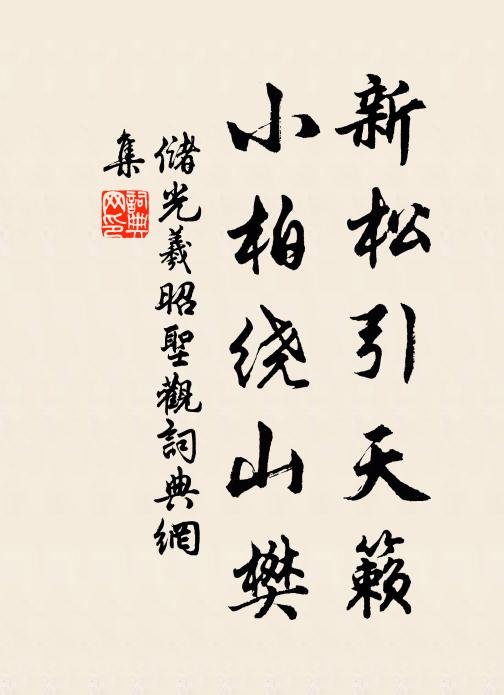 新松引天籁
小柏绕山樊
儲光羲昭聖觀詞典網
集
詞典
网印